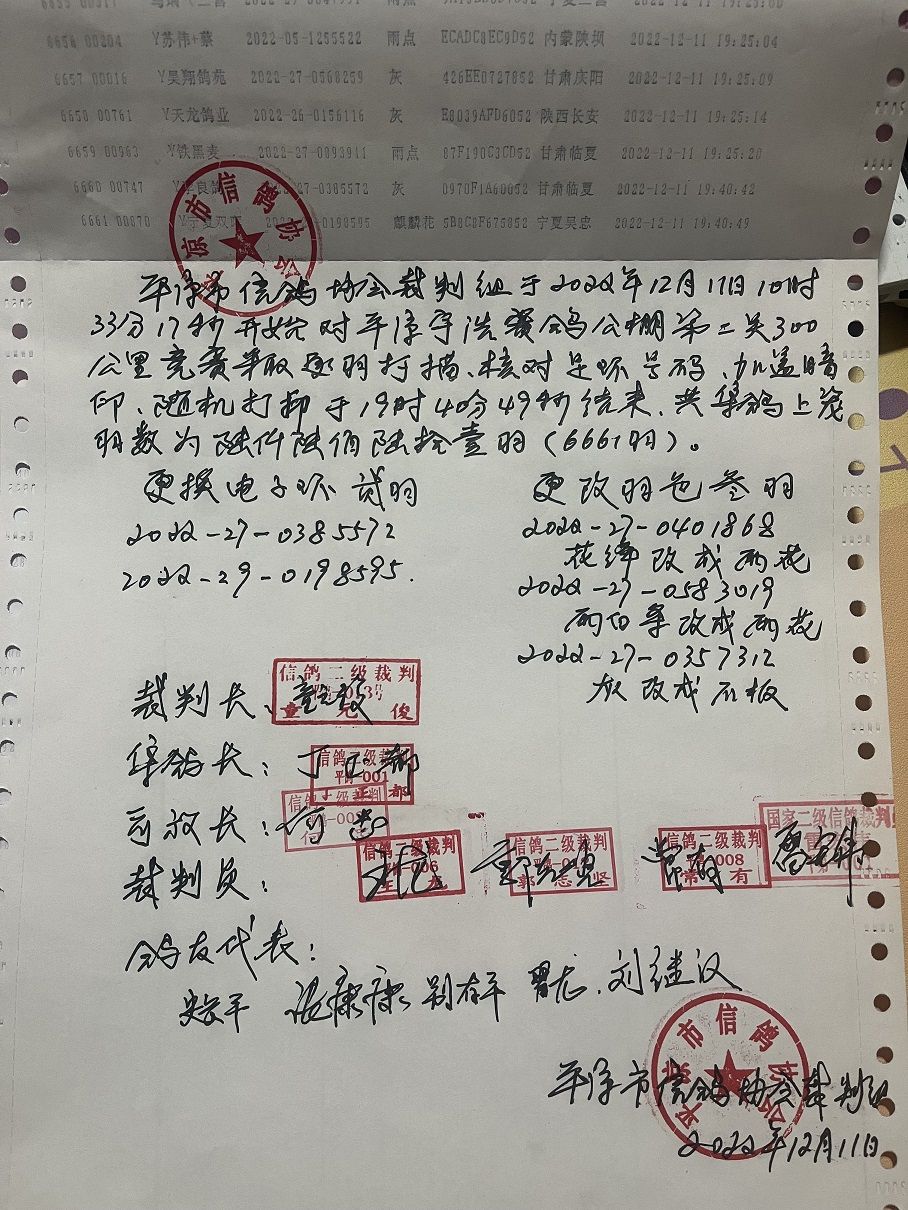 2022-27-0647991 雨点 宁夏
6656 00204 Y苏伟+蔡 2022-05-1255522 雨点 ECADC8EC9D52 内蒙陕坝 2022-12-11 19:25:04
6657 00016 Y昊翔鸽苑 2022-27-0568259 灰 426EE0727852 甘肃庆阳 2022-12-11 19:25:09
6658 00761 Y天龙鸽业 2022-26-0156116 灰 E8039AFD6052 陕西长安 2022-12-11 19:25:14
6659 00963 Y铁黑麦 2022-27-0093911 雨点 87F190C3CD52 甘肃临夏 2022-12-11 19:25:20
6660 00747 良鸽 27-0385572 灰 0970F1A60052 甘肃临夏 2022-12-11 19:40:42
6661 00870 Y宁夏双 0198595 麒麟花 5B8C8F675852 宁夏吴忠 2022-12-11 19:40:49
市信鸽协会
平凉市信鸽协会裁判组于2022年12月11日10时
33分17秒开始对平凉宇浩赛鸽公棚第二关300
公里竞赛采取逐羽扫描、核对足环号码、加盖暗
印、随机打印于19时40分49秒结束，共集鸽上笼
羽数为陆仟陆佰陆拾壹羽（6661羽）。
更换电子环贰羽
2022-27-0385572
2022-29-0198595.
更改羽色叁羽
2022-27-0401868
花绛改成雨花
2022-27-0583019
雨白条改成雨花
2022-27-0357312
灰改成石板
信鸽二级裁判
童 俊
裁判长：
信鸽二级裁判
001
正都
集鸽长：丁正都
信鸽二级裁判
何
司放长：何
信鸽二级裁判
006
信鸽二级裁判
郭志坚
信鸽二级裁判
008
常有
国家二级信鸽裁判
裁判员： 郭志坚 常有
鸽友代表：
张康康 刘继汉
平凉市信鸽协会
平凉市信鸽协会裁判组
2022年12月11日